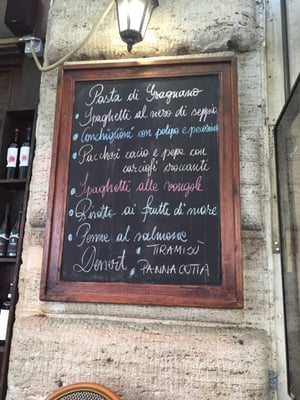 Pasta di Gragnano
• Spaghetti al nero di seppia
• Conchiglioni con polipo e pecorino
• Paccheri cacio e pepe con
carciofi croccanti
• Spaghetti alle vongole
• Risotto ai frutti di mare
• Penne al salmone
Dessert • TIRAMISÙ
• PANNACOTTA